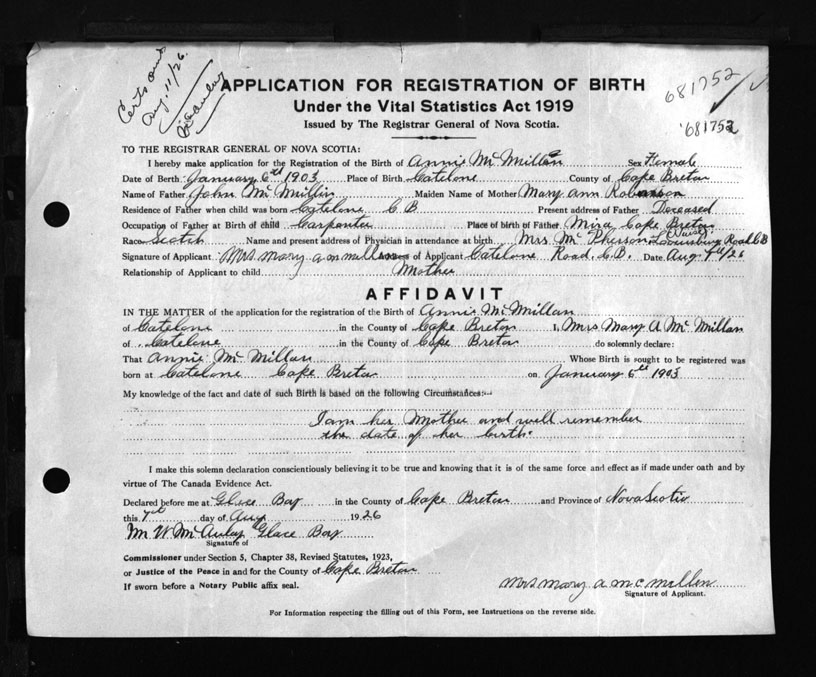 Certs
Aug. 11/26.
681752
681752
APPLICATION FOR REGISTRATION OF BIRTH
Under the Vital Statistics Act 1919
Issued by The Registrar General of Nova Scotia.
TO THE REGISTRAR GENERAL OF NOVA SCOTIA:
I hereby make application for the Registration of the Birth of Annie McMillan Sex Female
Date of Birth January 6th 1903 Place of Birth Catelone County of Cape Breton
Name of Father John McMillin Maiden Name of Mother Mary Ann
Residence of Father when child was born Catelone C B Present address of Father Deceased
Occupation of Father at Birth of child Carpenter Place of birth of Father Mira Cape Breton
Race Scotch Name and present address of Physician in attendance at birth Mrs. McPherson (Nurse) Louisburg Road C B
Signature of Applicant Mrs mary a mcmillan of Applicant Catelone Road, C.B. Date Aug 7th/26
Relationship of Applicant to child Mother
AFFIDAVIT
IN THE MATTER of the application for the registration of the Birth of Annie McMillan
of Catelone in the County of Cape Breton I, Mrs Mary A McMillan
of Catelone in the County of Cape Breton do solemnly declare:
That Annie McMillan Whose Birth is sought to be registered was
born at Catelone Cape Breton on January 6th 1903
My knowledge of the fact and date of such Birth is based on the following Circumstances:—
I am her Mother and well remember
the date of her birth.
I make this solemn declaration conscientiously believing it to be true and knowing that it is of the same force and effect as if made under oath and by
virtue of The Canada Evidence Act.
Declared before me at Glace Bay in the County of Cape Breton and Province of Nova Scotia
this 7th day of Aug 1926
M. W. McAulay Glace Bay
Signature of
Commissioner under Section 5, Chapter 38, Revised Statutes, 1923,
or Justice of the Peace in and for the County of Cape Breton
If sworn before a Notary Public affix seal.
Mrs mary a mcmillen
Signature of Applicant.
For Information respecting the filling out of this Form, see Instructions on the reverse side.